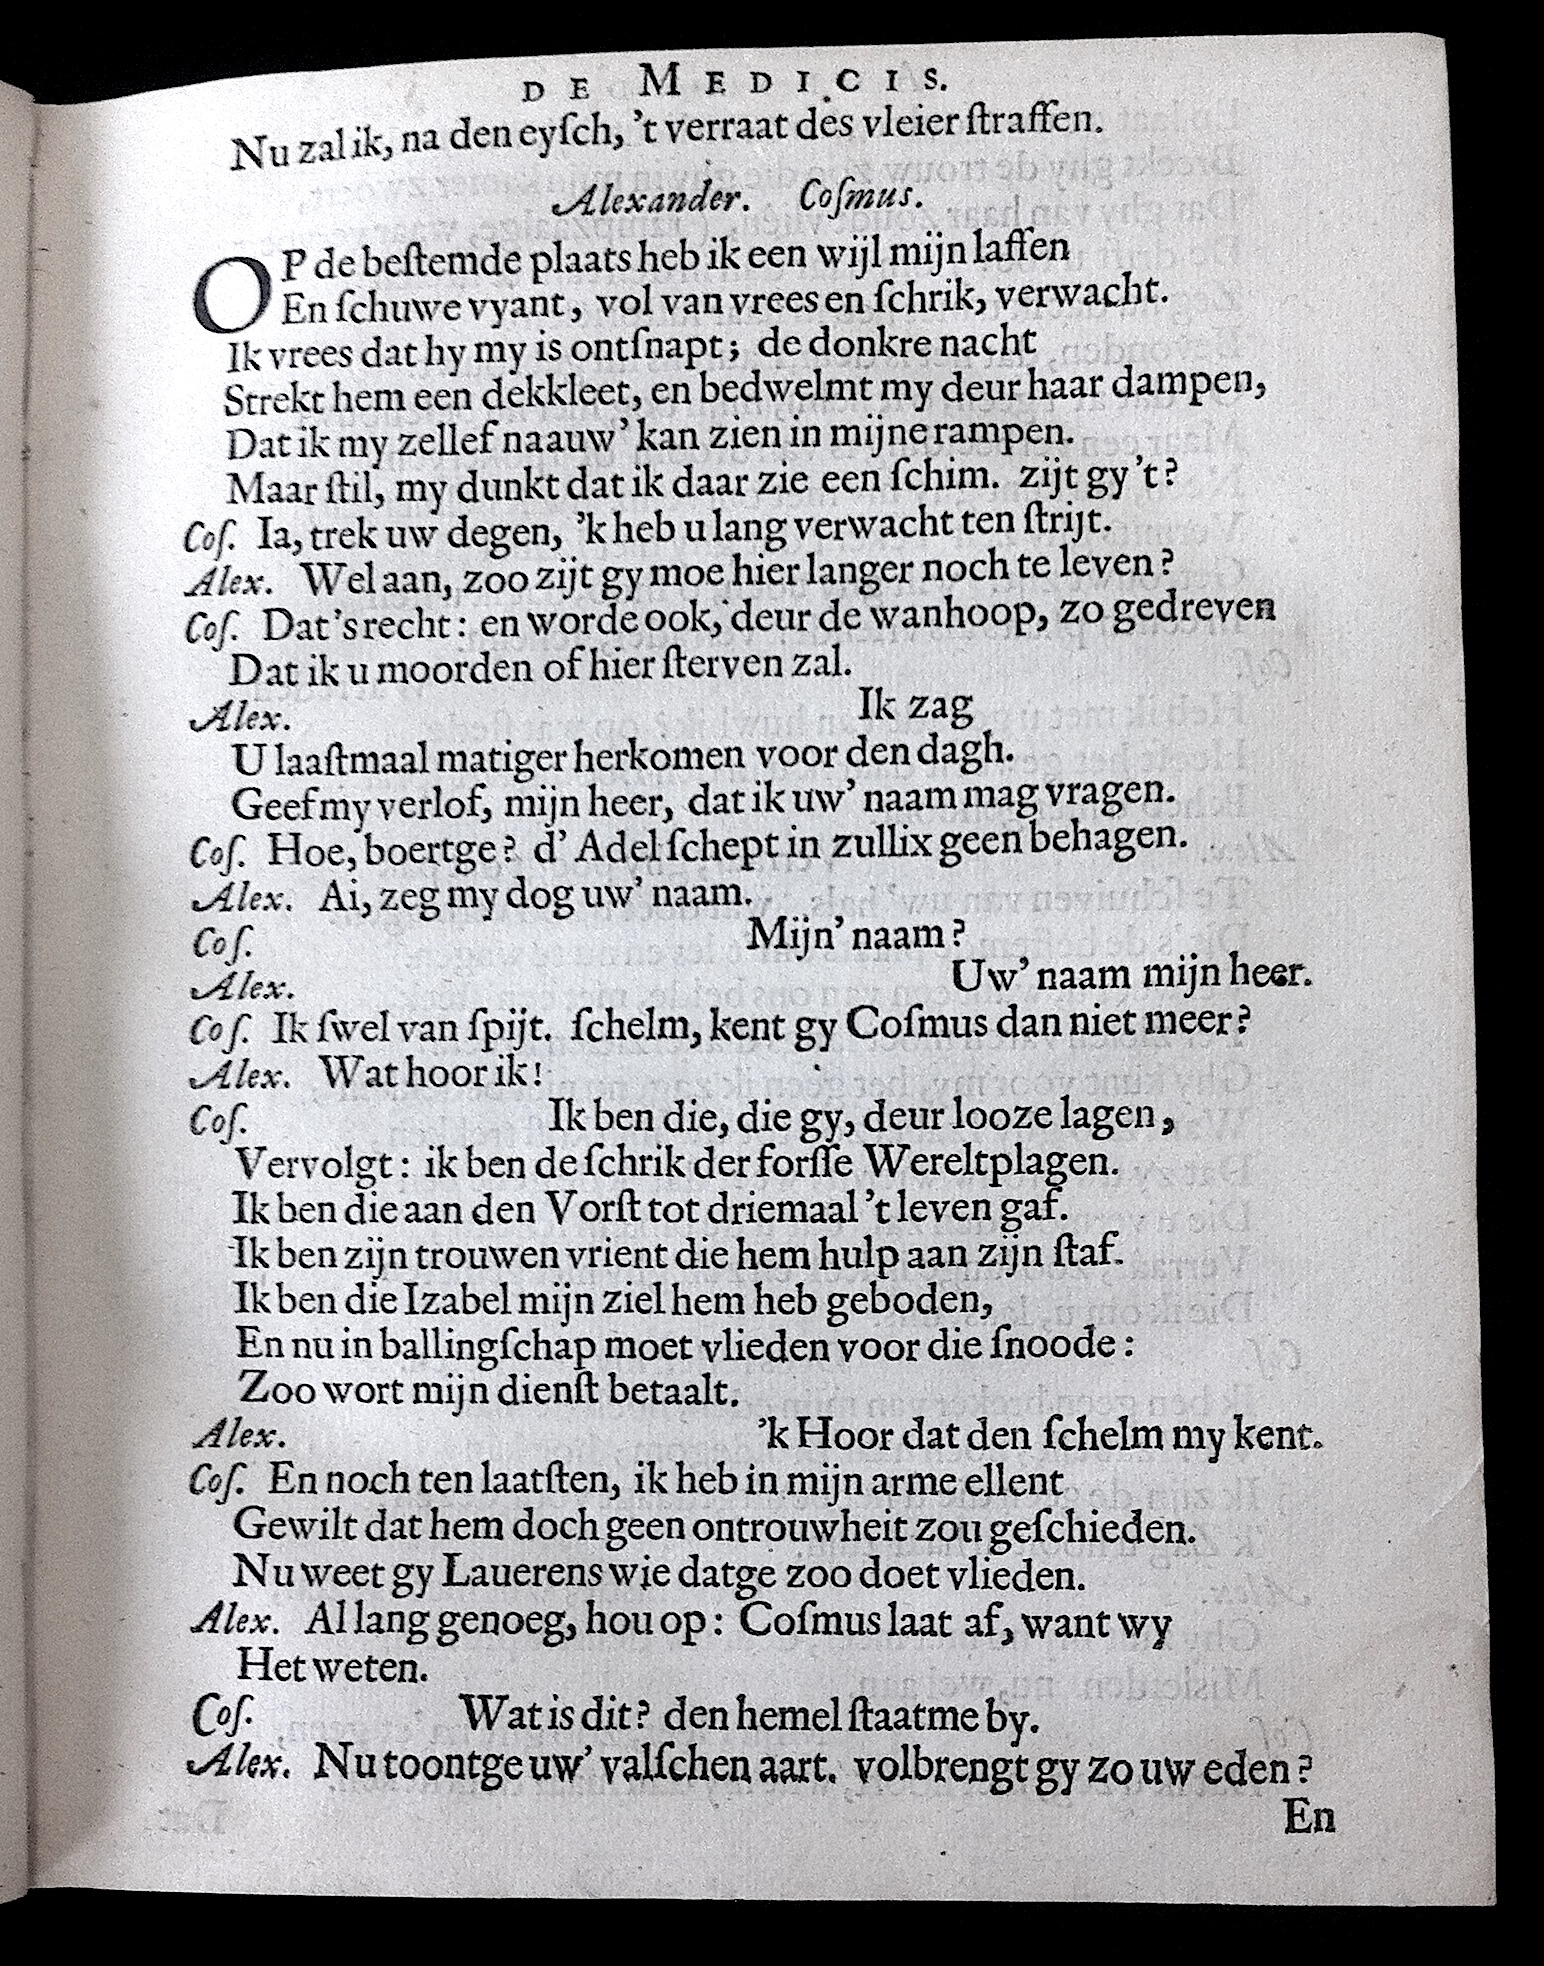 DE MEDICIS.
Nu zal ik, na den eyſch, 't verraat des vleier ſtraffen.
Alexander. Coſmus.
OP de beſtemde plaats heb ik een wijl mijn laffen
En ſchuwe vyant, vol van vrees en ſchrik, verwacht.
Ik vrees dat hy my is ontſnapt; de donkre nacht
Strekt hem een dekkleet, en bedwelmt my deur haar dampen,
Dat ik my zellef naauw' kan zien in mijne rampen.
Maar ſtil, my dunkt dat ik daar zie een ſchim. zijt gy 't?
Coſ. Ia, trek uw degen, 'k heb u lang verwacht ten ſtrijt.
Alex. Wel aan, zoo zijt gy moe hier langer noch te leven?
Coſ. Dat 's recht: en worde ook, deur de wanhoop, zo gedreven
Dat ik u moorden of hier ſterven zal.
Alex. Ik zag
U laaſtmaal matiger herkomen voor den dagh.
Geef my verlof, mijn heer, dat ik uw' naam mag vragen.
Coſ. Hoe, boertge? d' Adel ſchept in zullix geen behagen.
Alex. Ai, zeg my dog uw' naam.
Coſ. Mijn' naam?
Alex. Uw' naam mijn heer.
Coſ. Ik ſwel van ſpijt. ſchelm, kent gy Coſmus dan niet meer?
Alex. Wat hoor ik!
Coſ. Ik ben die, die gy, deur looze lagen,
Vervolgt: ik ben de ſchrik der forſſe Wereltplagen.
Ik ben die aan den Vorſt tot driemaal 't leven gaf.
Ik ben zijn trouwen vrient die hem hulp aan zijn ſtaf.
Ik ben die Izabel mijn ziel hem heb geboden,
En nu in ballingſchap moet vlieden voor die ſnoode:
Zoo wort mijn dienſt betaalt.
Alex. 'k Hoor dat den ſchelm my kent.
Coſ. En noch ten laatſten, ik heb in mijn arme ellent
Gewilt dat hem doch geen ontrouwheit zou geſchieden.
Nu weet gy Lauerens wie datge zoo doet vlieden.
Alex. Al lang genoeg, hou op: Coſmus laat af, want wy
Het weten.
Coſ. Wat is dit? den hemel ſtaat me by.
Alex. Nu toontge uw' valſchen aart. volbrengt gy zo uw eden?
En